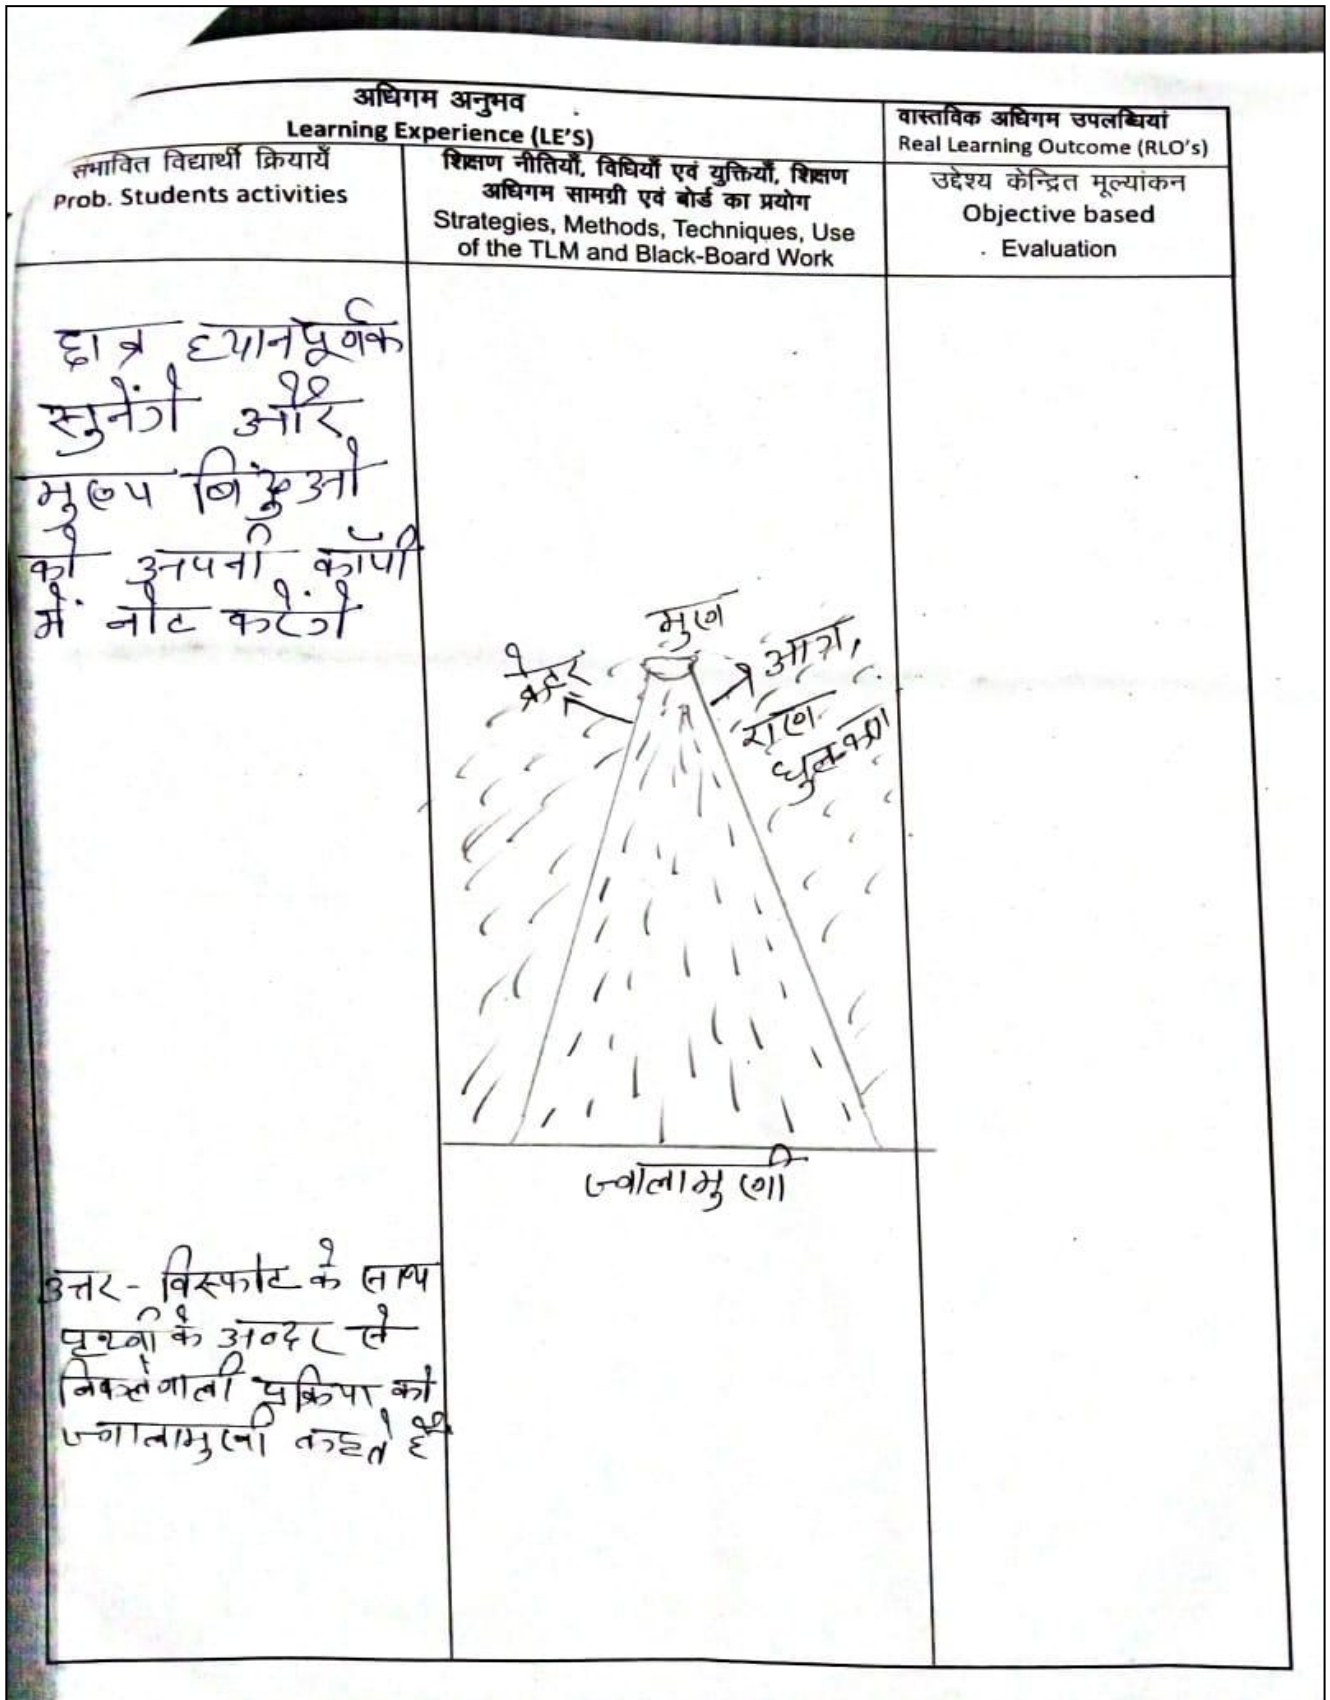 अधिगम अनुभव
Learning Experience (LE'S)
वास्तविक अधिगम उपलब्धियां
Real Learning Outcome (RLO's)
संभावित विद्यार्थी क्रियायें
Prob. Students activities
शिक्षण नीतियाँ, विधियाँ एवं युक्तियाँ, शिक्षण
अधिगम सामग्री एवं बोर्ड का प्रयोग
Strategies, Methods, Techniques, Use
of the TLM and Black-Board Work
उद्देश्य केन्द्रित मूल्यांकन
Objective based
Evaluation
छात्र ध्यानपूर्वक
सुनेंगे और
मुख्य बिंदुओ
को अपनी कॉपी
में नोट करेंगे
मुख
क्रेटर
आग,
राख
धुल-कण
ज्वालामुखी
उत्तर - विस्फोट के साथ
पृथ्वी के अन्दर से
निकलेवाली प्रक्रिया को
ज्वालामुखी कहते है